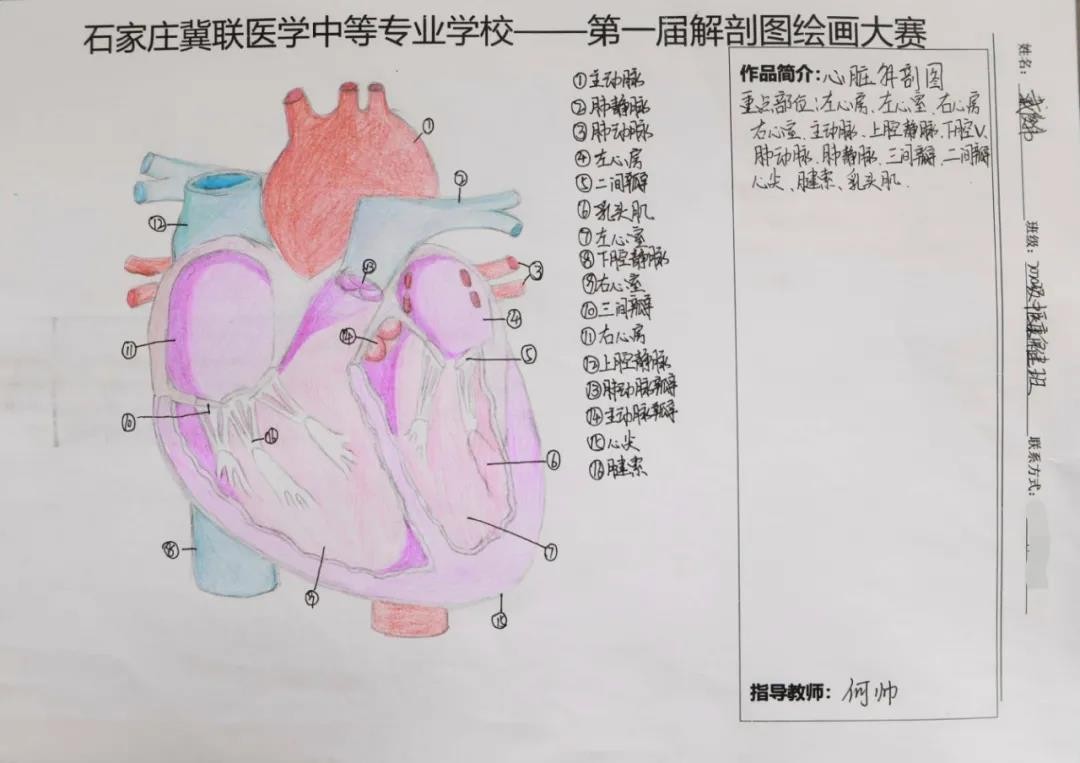 石家庄冀联医学中等专业学校——第一届解剖图绘画大赛
①主动脉
②肺静脉
③肺动脉
④左心房
⑤二间瓣
⑥乳头肌
⑦左心室
⑧下腔静脉
⑨右心室
⑩三间瓣
⑪右心房
⑫上腔静脉
⑬肺动脉瓣
⑭主动脉瓣
⑮心尖
⑯腱索
作品简介:心脏解剖图
重点部位:左心房、左心室、右心房
右心室、主动脉、上腔静脉、下腔V
肺动脉、肺静脉、三间瓣、二间瓣
心尖、腱索、乳头肌.
指导教师:何帅
姓名:
班级:
联系方式:
①
②
⑫
⑬
③
④
⑭
⑪
⑤
⑩
⑯
⑥
⑧
⑦
⑨
⑮